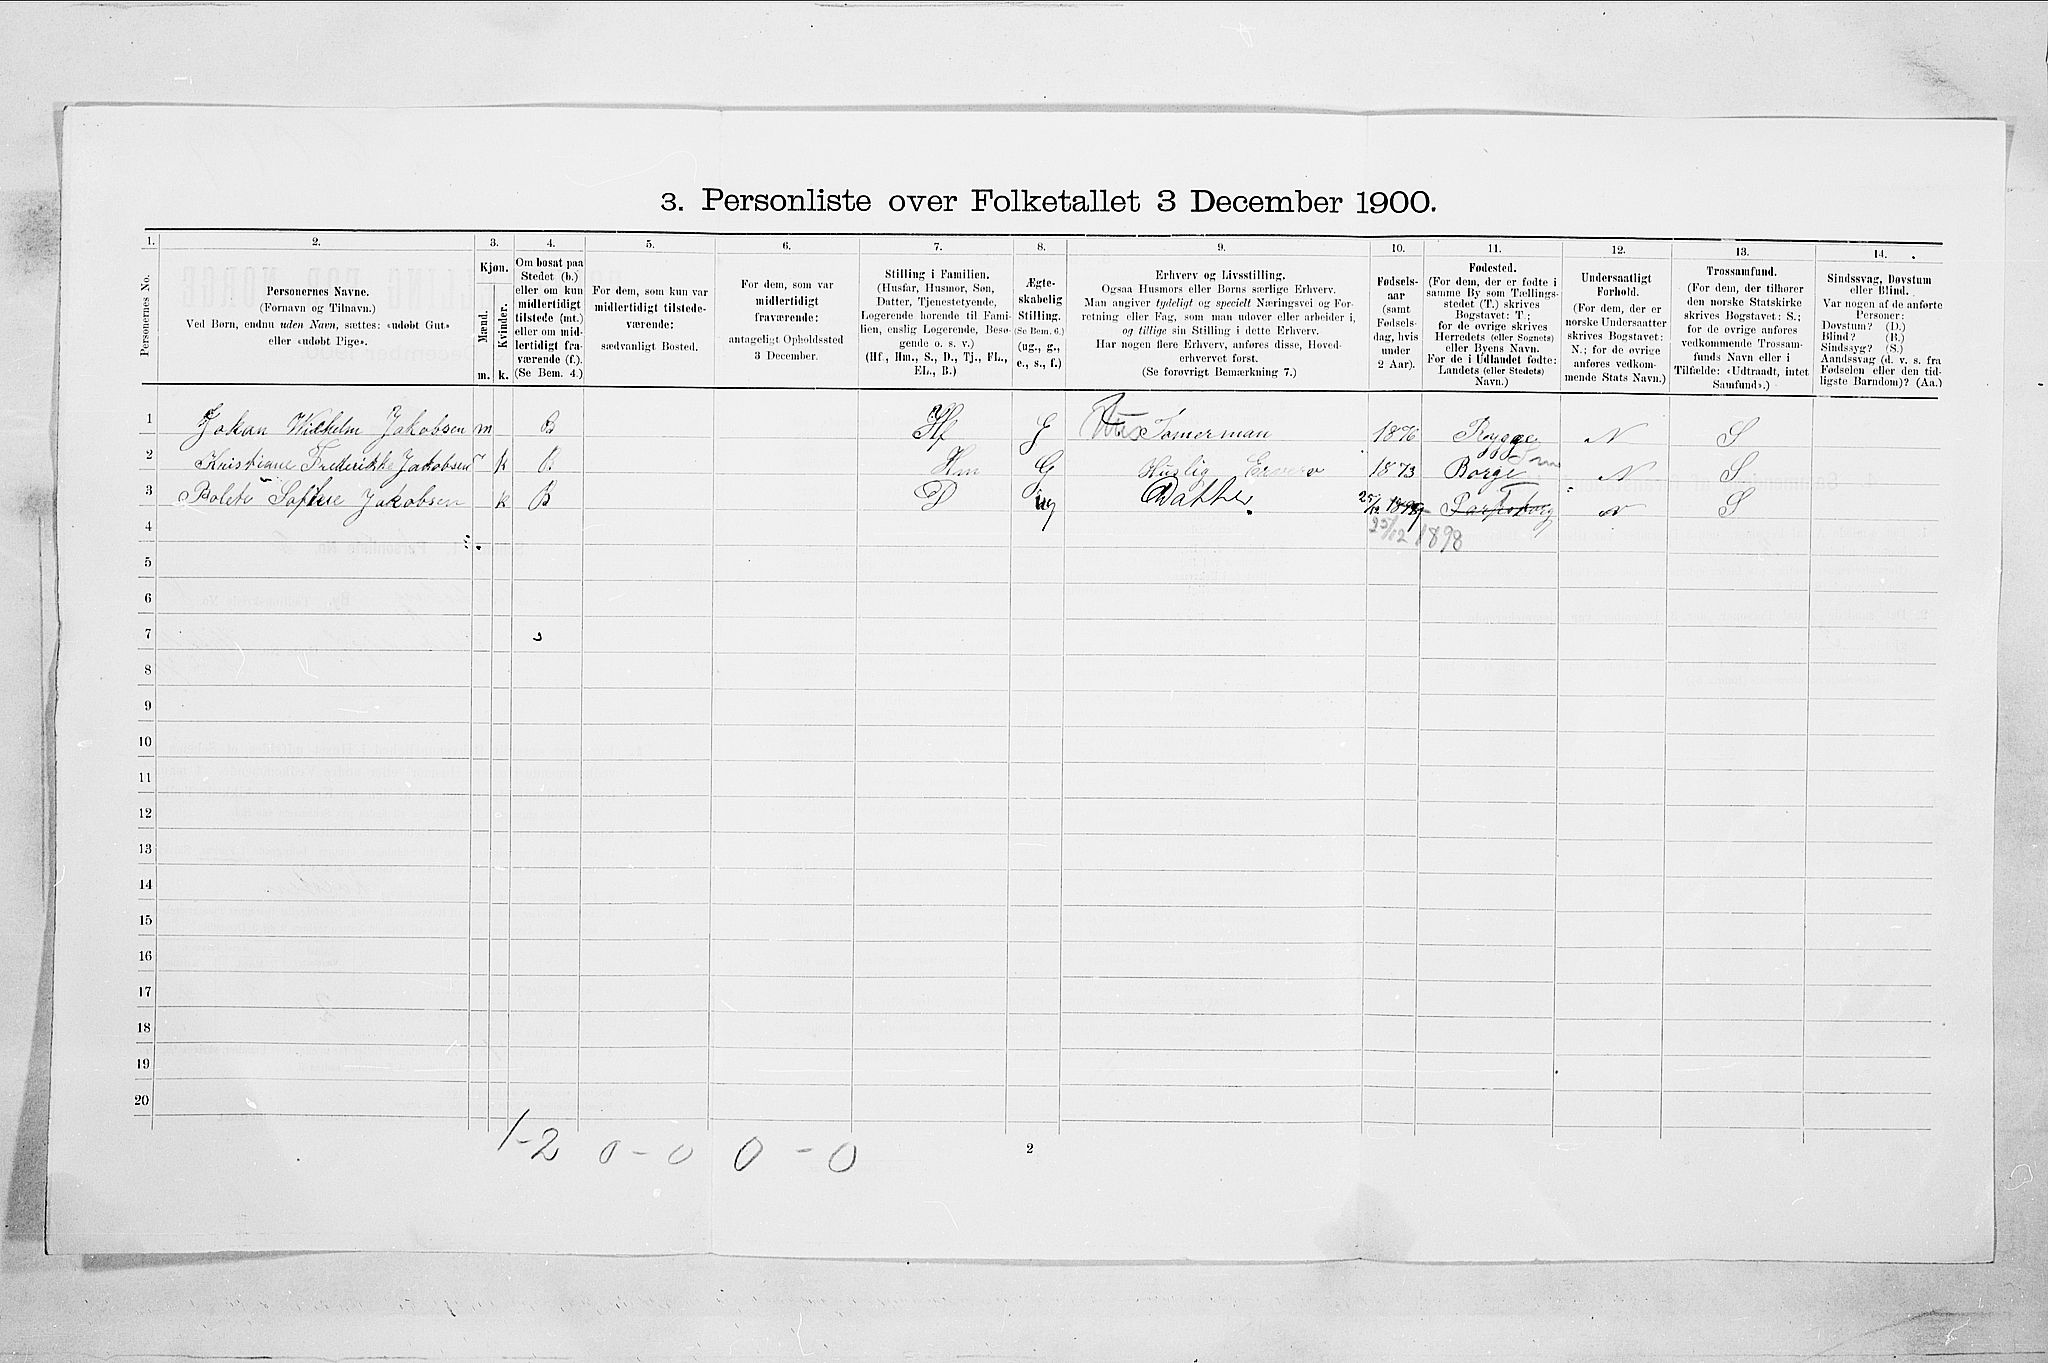 3. Personliste over Folketallet 3 December 1900.
1. 2. 3. 4. 5. 6. 7. 8. 9. 10. 11. 12. 13. 14.
Personernes No.
Personernes Navne.
(Fornavn og Tilnavn.)
Ved Børn, endnu uden Navn, sættes: «udøbt Gut»
eller «udøbt Pige».
Kjøn.
Mænd.
Kvinder.
m. k.
Om bosat paa
Stedet (b.)
eller om kun
midlertidigt
tilstede (mt.)
eller om mid-
lertidigt fra-
værende (f.).
(Se Bem. 4.)
For dem, som kun var
midlertidigt tilstede-
værende:
sædvanligt Bosted.
For dem, som var
midlertidigt
fraværende:
antageligt Opholdssted
3 December.
Stilling i Familien.
(Husfar, Husmor, Søn,
Datter, Tjenestetyende,
Logerende hørende til Fami-
lien, enslig Logerende, Besø-
gende o. s. v.)
(Hf., Hm., S., D., Tj., FL.,
EL., B.)
Ægte-
skabelig
Stilling.
(Se Bem. 6.)
(ug., g.,
e., s., f.)
Erhverv og Livsstilling.
Ogsaa Husmors eller Børns særlige Erhverv.
Man angiver tydeligt og specielt Næringsvei og For-
retning eller Fag, som man udøver eller arbeider i,
og tillige sin Stilling i dette Erhverv.
Har nogen flere Erhverv, anføres disse, Hoved-
erhvervet først.
(Se forøvrigt Bemærkning 7.)
Fødsels-
aar
(samt
Fødsels-
dag, hvis
under
2 Aar).
Fødested.
(For dem, der er fødte i
samme By som Tællings-
stedet (T.) skrives
Bogstavet: T;
for de øvrige skrives
Herredets (eller Sognets)
eller Byens Navn.
For de i Udlandet fødte:
Landets (eller Stedets)
Navn.)
Undersaatligt
Forhold.
(For dem, der er
norske Undersaatter
skrives Bogstavet:
N.; for de øvrige
anføres vedkom-
mende Stats Navn.)
Trossamfund.
(For dem, der tilhører
den norske Statskirke
skrives Bogstavet: S.;
for de øvrige anføres
vedkommende Trossam-
funds Navn eller i
Tilfælde: «Udtraadt, intet
Samfund».)
Sindssvag, Døvstum
eller Blind.
Var nogen af de anførte
Personer:
Døvstum? (D.)
Blind? (B.)
Sindssyg? (S.)
Aandssvag (d. v. s. fra
Fødselen eller den tid-
ligste Barndom)? (Aa.)
1 Johan Wilhelm Jakobsen m B Hf G Tomerman 1876 Rygge N S
2 Kristiane Frederikke Jakobsen k B Hm G Huslig Erverv 1873 Borge N S
3 Bolete Sofhie Jakobsen k B D ug Datter 25/12 T N S
4 25/12 1898
5
6
7
8
9
10
11
12
13
14
15
16
17
18
19
20
1-2 0-0 0-0
2